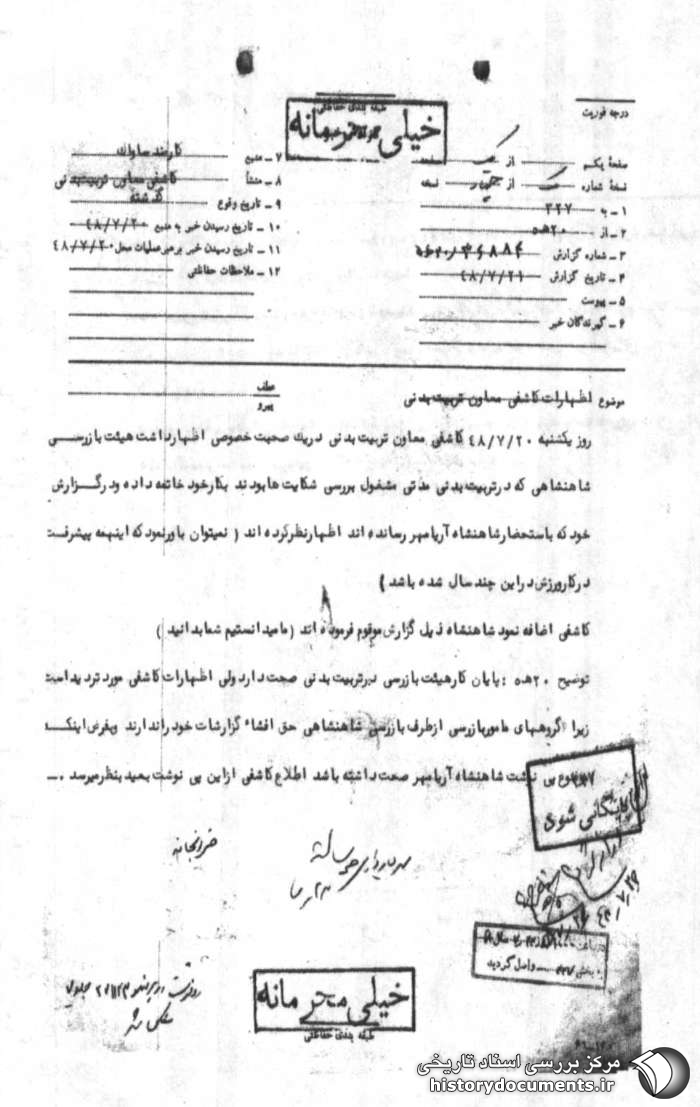 درجه فوریت
طبقه بندی حفاظتی
خیلی محرمانه
صفحه یکم از یک صفحه
نسخه شماره یک از چهار نسخه
۱ ـ به ۳۲۷
۲ ـ از ۲۰ ه‍ ۵
۳ ـ شماره گزارش
۴ ـ تاریخ گزارش ۴۸/۷/۲۱
۵ ـ پیوست
۶ ـ گیرندگان خبر
۷ ـ منبع کارمند ساواک
۸ ـ منشأ کاشفی معاون تربیت بدنی
۹ ـ تاریخ وقوع گذشته
۱۰ ـ تاریخ رسیدن خبر به منبع ۴۸/۷/۲۰
۱۱ ـ تاریخ رسیدن خبر برهبر عملیات محل ۴۸/۷/۲۰
۱۲ ـ ملاحظات حفاظتی
عطف
پیرو
موضوع اظهارات کاشفی معاون تربیت بدنی
روز یکشنبه ۴۸/۷/۲۰ کاشفی معاون تربیت بدنی در یک صحبت خصوصی اظهار داشت هیئت بازرسی
شاهنشاهی که در تربیت بدنی مدتی مشغول بررسی شکایت ها بودند بکار خود خاتمه داده و در گزارش
خود که باستحضار شاهنشاه آریامهر رسانده اند اظهار نظر کرده اند ( نمیتوان باور نمود که اینهمه پیشرفت
در کار ورزش در این چند سال شده باشد )
کاشفی اضافه نمود شاهنشاه ذیل گزارش مرقوم فرموده اند ( ما میدانستیم شما بدانید )
توضیح ۲۰ ه‍ ۵ : پایان کار هیئت بازرسی در تربیت بدنی صحت دارد ولی اظهارات کاشفی مورد تردید است
زیرا گروههای مامور بازرسی از طرف بازرسی شاهنشاهی حق افشاء گزارشات خود را ندارند و بفرض اینکه
موضوع پی نوشت شاهنشاه آریامهر صحت داشته باشد اطلاع کاشفی از این پی نوشت بعید بنظر میرسد .ـ
بایگانی شود
واصل گردید
خیلی محرمانه
طبقه بندی حفاظتی
مرکز بررسی اسناد تاریخی
historydocuments.ir